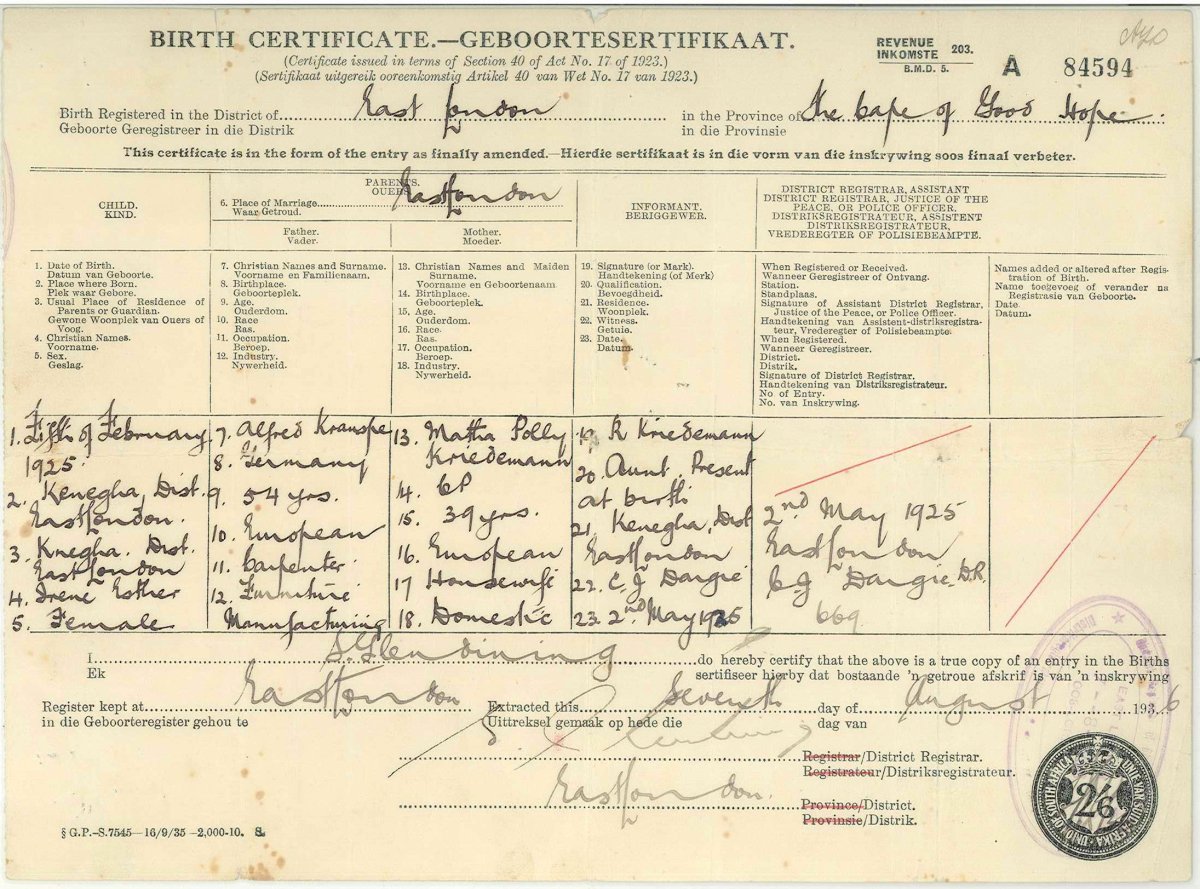 BIRTH CERTIFICATE.—GEBOORTESERTIFIKAAT.
(Certificate issued in terms of Section 40 of Act No. 17 of 1923.)
(Sertifikaat uitgereik ooreenkomstig Artikel 40 van Wet No. 17 van 1923.)
REVENUE
INKOMSTE 203.
B.M.D. 5.
A 84594
Birth Registered in the District of East London in the Province of The Cape of Good Hope.
Geboorte Geregistreer in die Distrik in die Provinsie
This certificate is in the form of the entry as finally amended.—Hierdie sertifikaat is in die vorm van die inskrywing soos finaal verbeter.
CHILD.
KIND.
PARENTS.
OUERS.
6. Place of Marriage East London
Waar Getroud.
Father.
Vader.
Mother.
Moeder.
INFORMANT.
BERIGGEWER.
DISTRICT REGISTRAR, ASSISTANT
DISTRICT REGISTRAR, JUSTICE OF THE
PEACE, OR POLICE OFFICER.
DISTRIKSREGISTRATEUR, ASSISTENT
DISTRIKSREGISTRATEUR,
VREDEREGTER OF POLISIEBEAMPTE.
1. Date of Birth.
Datum van Geboorte.
2. Place where Born.
Plek waar Gebore.
3. Usual Place of Residence of
Parents or Guardian.
Gewone Woonplek van Ouers of
Voog.
4. Christian Names.
Voorname.
5. Sex.
Geslag.
7. Christian Names and Surname.
Voorname en Familienaam.
8. Birthplace.
Geboorteplek.
9. Age.
Ouderdom.
10. Race
Ras.
11. Occupation.
Beroep.
12. Industry.
Nywerheid.
13. Christian Names and Maiden
Surname.
Voorname en Geboortenaam
14. Birthplace.
Geboorteplek.
15. Age.
Ouderdom.
16. Race.
Ras.
17. Occupation.
Beroep.
18. Industry.
Nywerheid.
19. Signature (or Mark).
Handtekening (of Merk)
20. Qualification.
Bevoegdheid.
21. Residence.
Woonplek.
22. Witness.
Getuie.
23. Date.
Datum.
When Registered or Received.
Wanneer Geregistreer of Ontvang.
Station.
Standplaas.
Signature of Assistant District Registrar,
Justice of the Peace, or Police Officer.
Handtekening van Assistent-distriksregistra-
teur, Vrederegter of Polisiebeampte.
When Registered.
Wanneer Geregistreer.
District.
Distrik.
Signature of District Registrar.
Handtekening van Distriksregistrateur.
No of Entry.
No. van Inskrywing.
Names added or altered after Regis-
tration of Birth.
Name toegevoeg of verander na
Registrasie van Geboorte.
Date
Datum.
1. Fifth of February
1925.
2. Kenegha, Dist.
East London.
3. Knegha. Dist.
East London
4. Irene Esther
5. Female
7. Alfred Kranspe
8. Germany
9. 54 yrs.
10. European
11. Carpenter
12. Furniture
Manufacturing
13. Matha Polly
Kriedemann
14. CP
15. 39 yrs.
16. European
17 Housewife
18. Domestic
19. R Kriedemann
20. Aunt. Present
at birth
21. Kenegha, Dist
East London
22. C. J Dargie
23. 2nd May 1925
2nd May 1925
East London
C. J Dargie D.R.
669
I S. Glendining do hereby certify that the above is a true copy of an entry in the Births
Ek sertifiseer hierby dat bostaande 'n getroue afskrif is van 'n inskrywing
Register kept at East London Extracted this Seventh day of August 1936
in die Geboorteregister gehou te Uittreksel gemaak op hede die dag van
Registrar/District Registrar.
Registrateur/Distriksregistrateur.
East London.
Province/District.
Provinsie/Distrik.
§ G.P.-S.7545—16/9/35—2,000-10. S.
UNION OF SOUTH AFRICA
UNIE VAN SUID AFRIKA
2/6